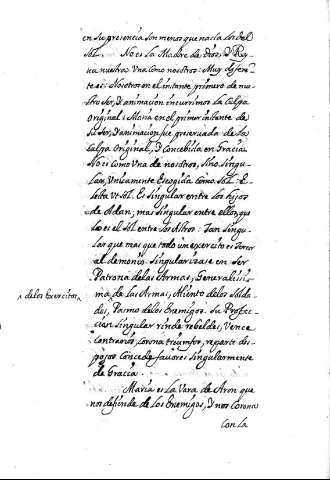 en su presencia son menos que nada los del
sol. No es la Madre de Dios, y Rey-
na nuestra Una como nosotros: Muy diferen-
te es: Nosotros en el instante primero de nu-
stro Ser, y animacion incurrimos la Culpa
Original: Maria en el primer instante de
su Ser, y animacion, fue preservada de la
Culpa Original, y Concebida en Gracia
No es como Una de nosotros, Sino Singu-
lar, Unicamente Escogida como Sol. E-
lecta ut Sol. Es singular entre los hijos
de Adan; mas singular entre ellos, que
lo es el Sol entre los Astros: Tan singu-
lar que mas que todo un exercito es Terror
al demonio. Singularizase en Ser
Patrona de las Armas, Generalissi-
ma de las Armas, Aliento de los Solda-
de los Exercitos,
dos, Pasmo de los Enemigos. Su Protec-
cion singular rinde rebeldes, Vence
Contrarios, Corona triumfos, reparte des-
pojos Concede favores singularmente
de Gracia.
Maria es la Vara de Aron que
nos defiende de los Enemigos, y nos Corona
Con la